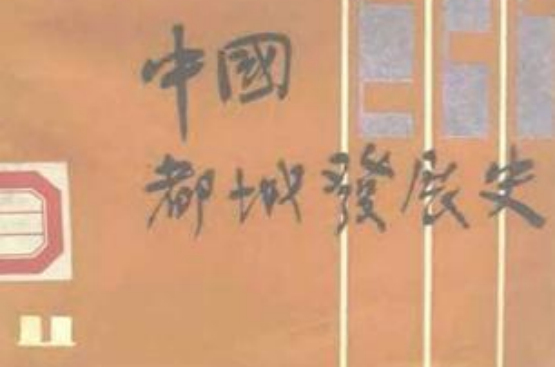 中國
都城發展史